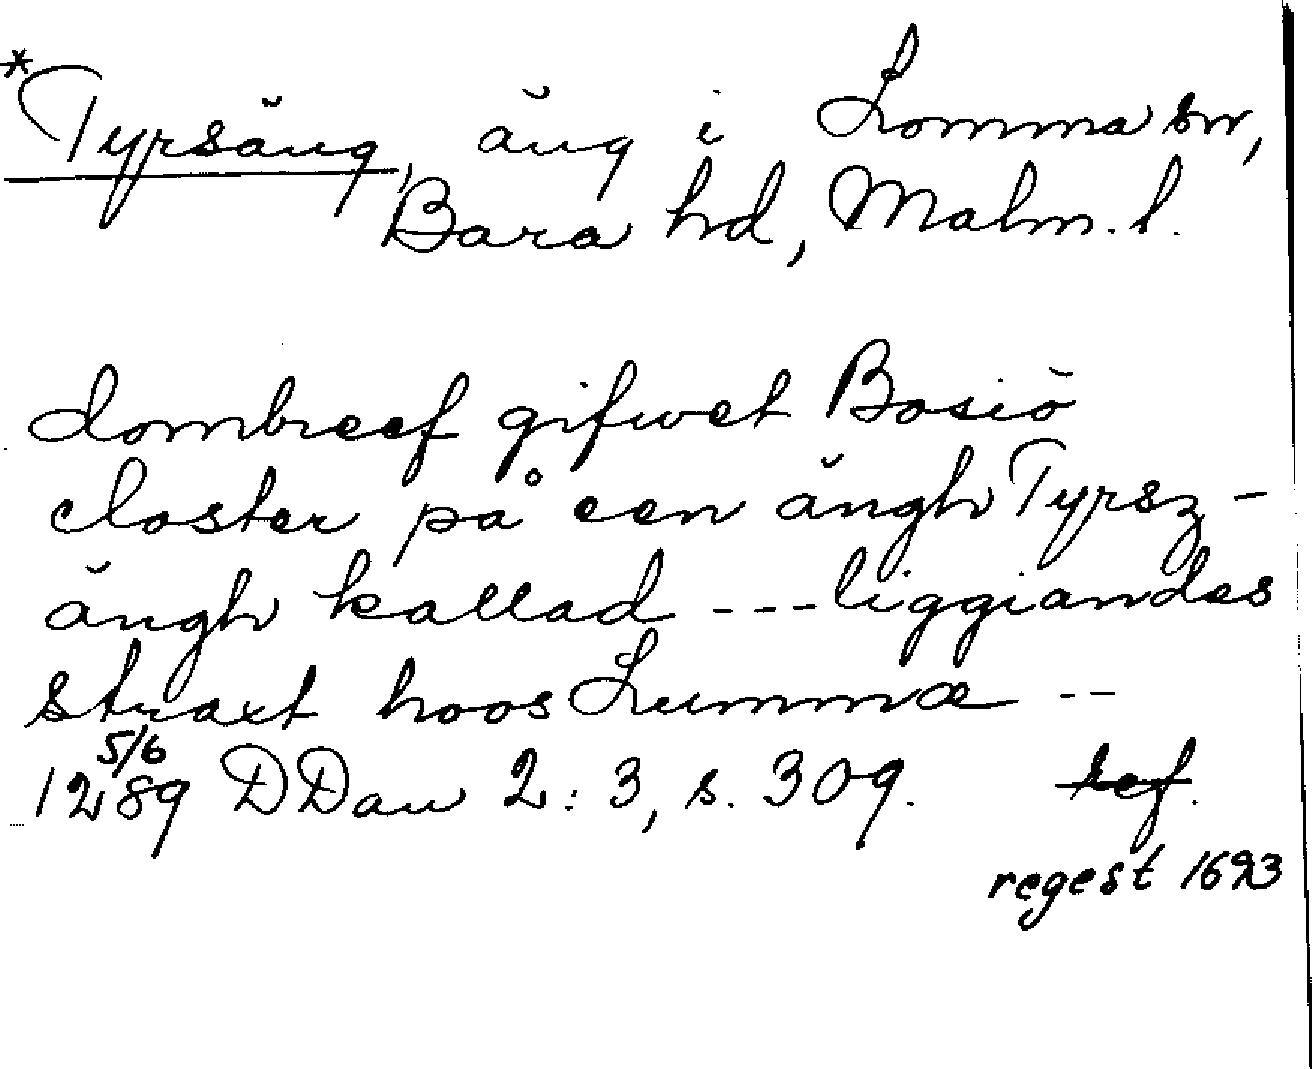 *Tyrsäng, äng i Lomma sn,
Bara hd, Malm. l.
dombreef gifwet Bosiö
closter på een ängh Tyrsz-
ängh kallad --- liggiandes
straxt hoos Lummæ --
5/6
1289 DDan 2:3, s. 309. ref.
regest 1693